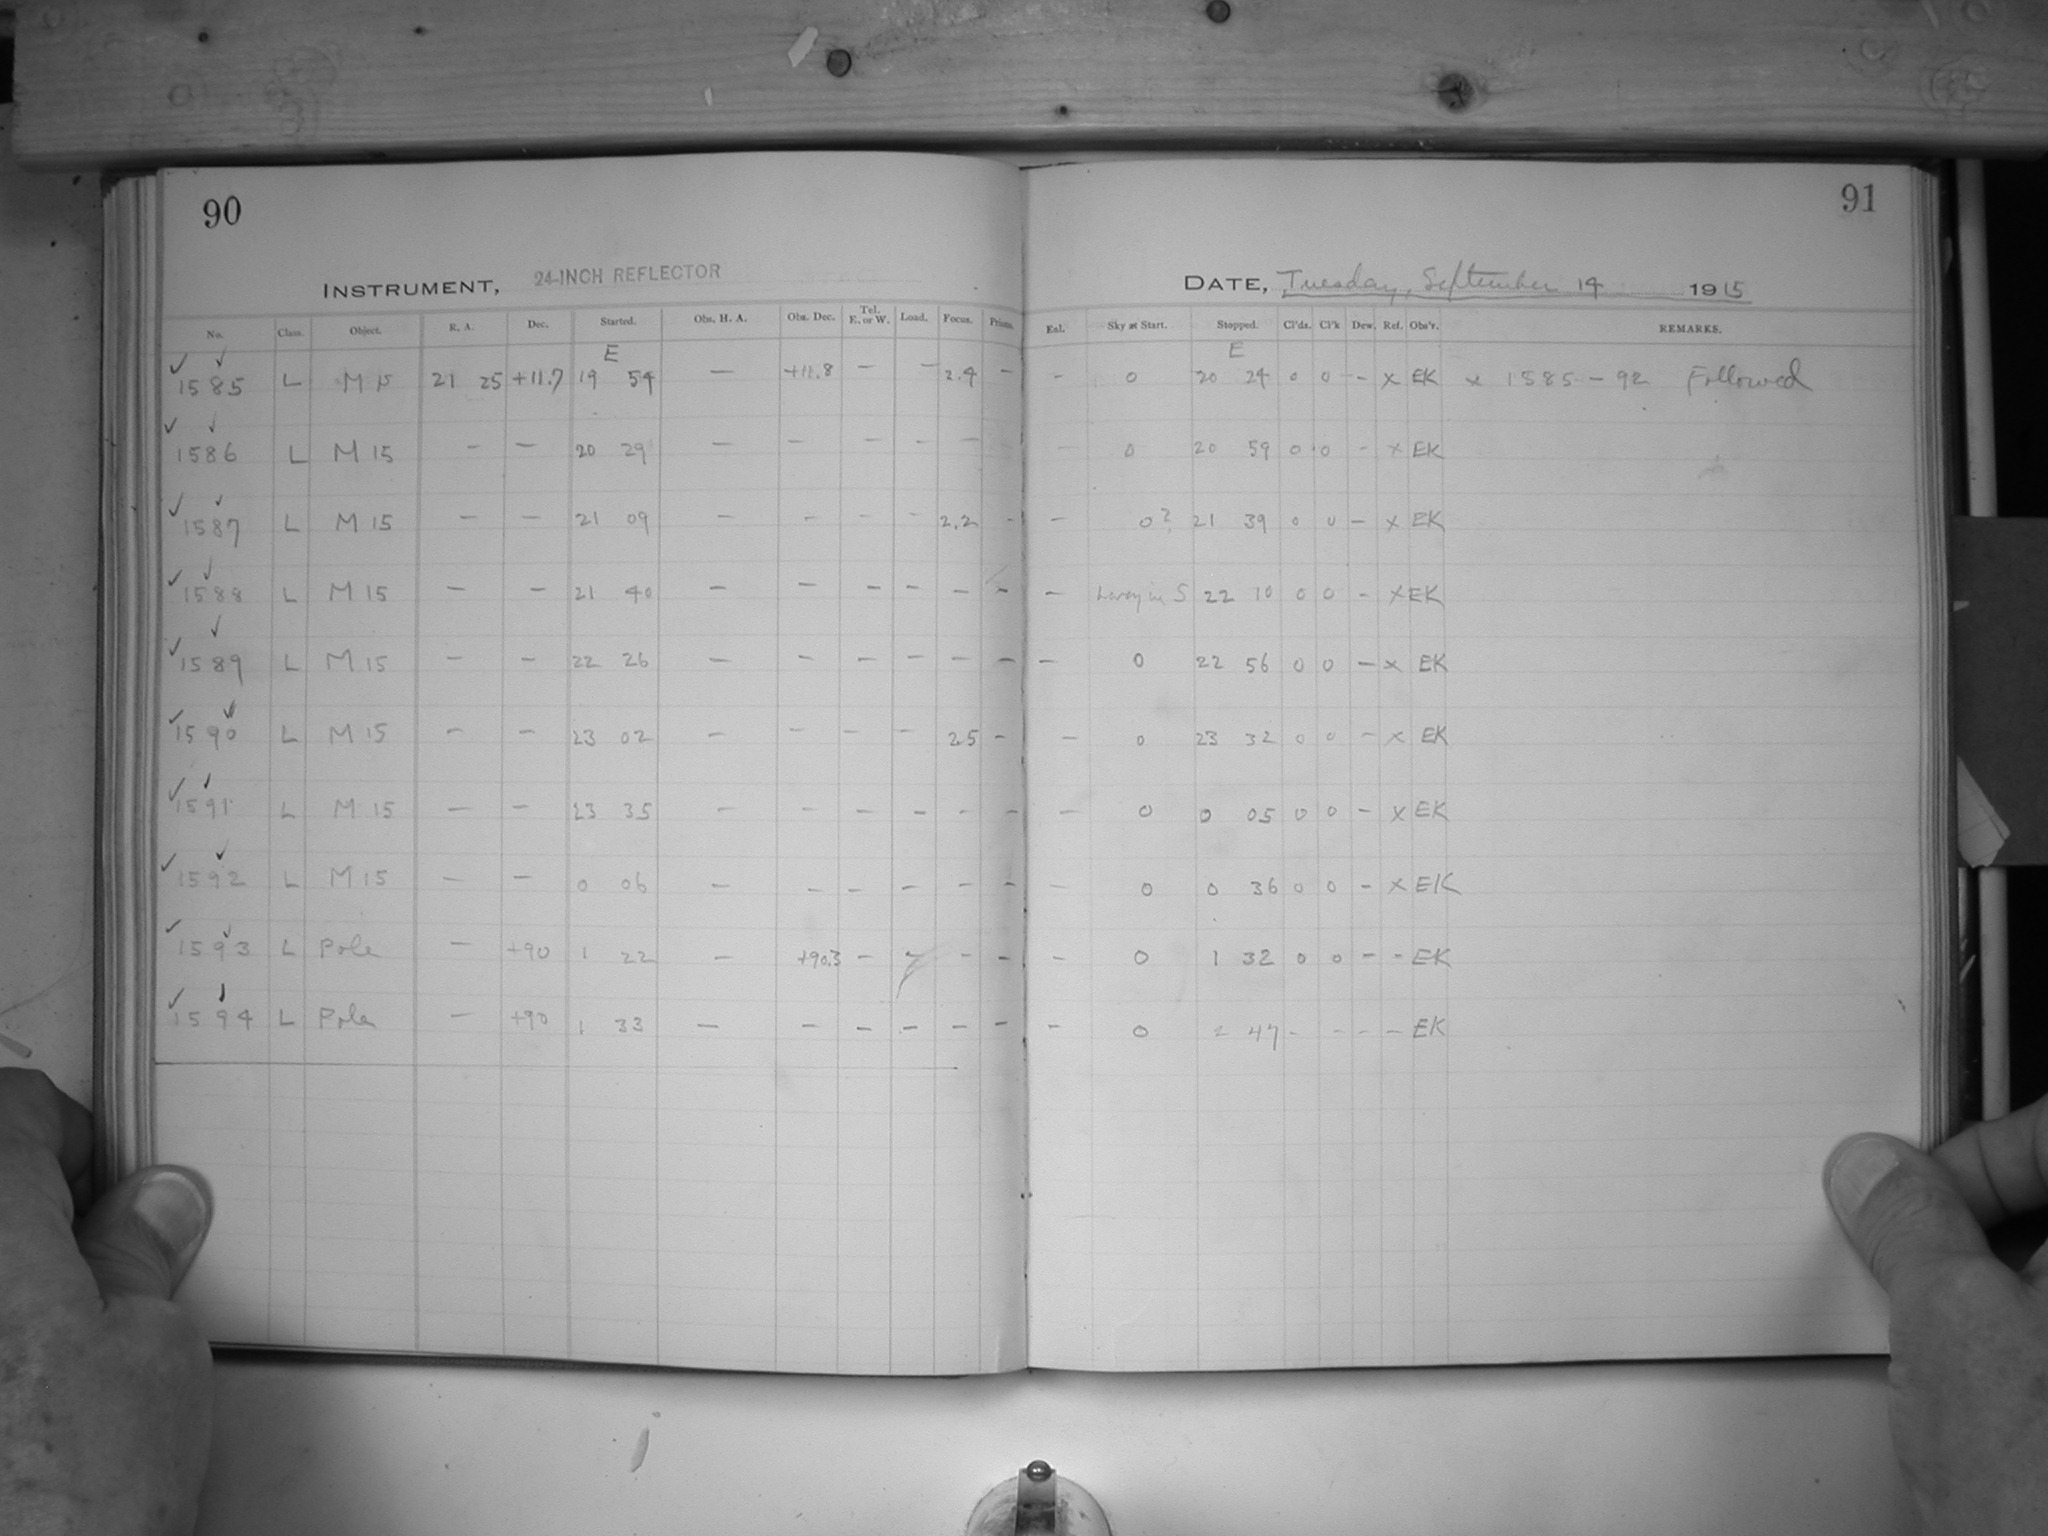 90
INSTRUMENT, 24-INCH REFLECTOR
No. Class. Object. R. A. Dec. Started. Obs. H. A. Obs. Dec. Tel. E. or W. Load. Focus. Prism.
E
✓ ✓
1585 L M 15 21 25 +11.7 19 54 — +11.8 — — 2.4 —
✓ ✓
1586 L M 15 — — 20 29 — — — — — —
✓ ✓
1587 L M 15 — — 21 09 — — — — 2.2 —
✓ ✓
1588 L M 15 — — 21 40 — — — — — —
✓ ✓
1589 L M 15 — — 22 26 — — — — — —
✓ ✓
1590 L M 15 — — 23 02 — — — — 2.5 —
✓ ✓
1591 L M 15 — — 23 35 — — — — — —
✓ ✓
1592 L M 15 — — 0 06 — — — — — —
✓ ✓
1593 L Pole — +90 1 22 — +90.3 — — — —
✓ ✓
1594 L Pole — +90 1 33 — — — — — —
91
DATE, Tuesday, September 14 1915
Enl. Sky at Start. Stopped. Cl'ds. Cl'k Dew. Ref. Obs'r. REMARKS.
E
— 0 20 24 0 0 — x EK x 1585 - 92 Followed
— 0 20 59 0 0 — x EK
— 0? 21 39 0 0 — x EK
— in S 22 10 0 0 — x EK
— 0 22 56 0 0 — x EK
— 0 23 32 0 0 — x EK
— 0 0 05 0 0 — x EK
— 0 0 36 0 0 — x EK
— 0 1 32 0 0 — — EK
— 0 47 — — — — EK